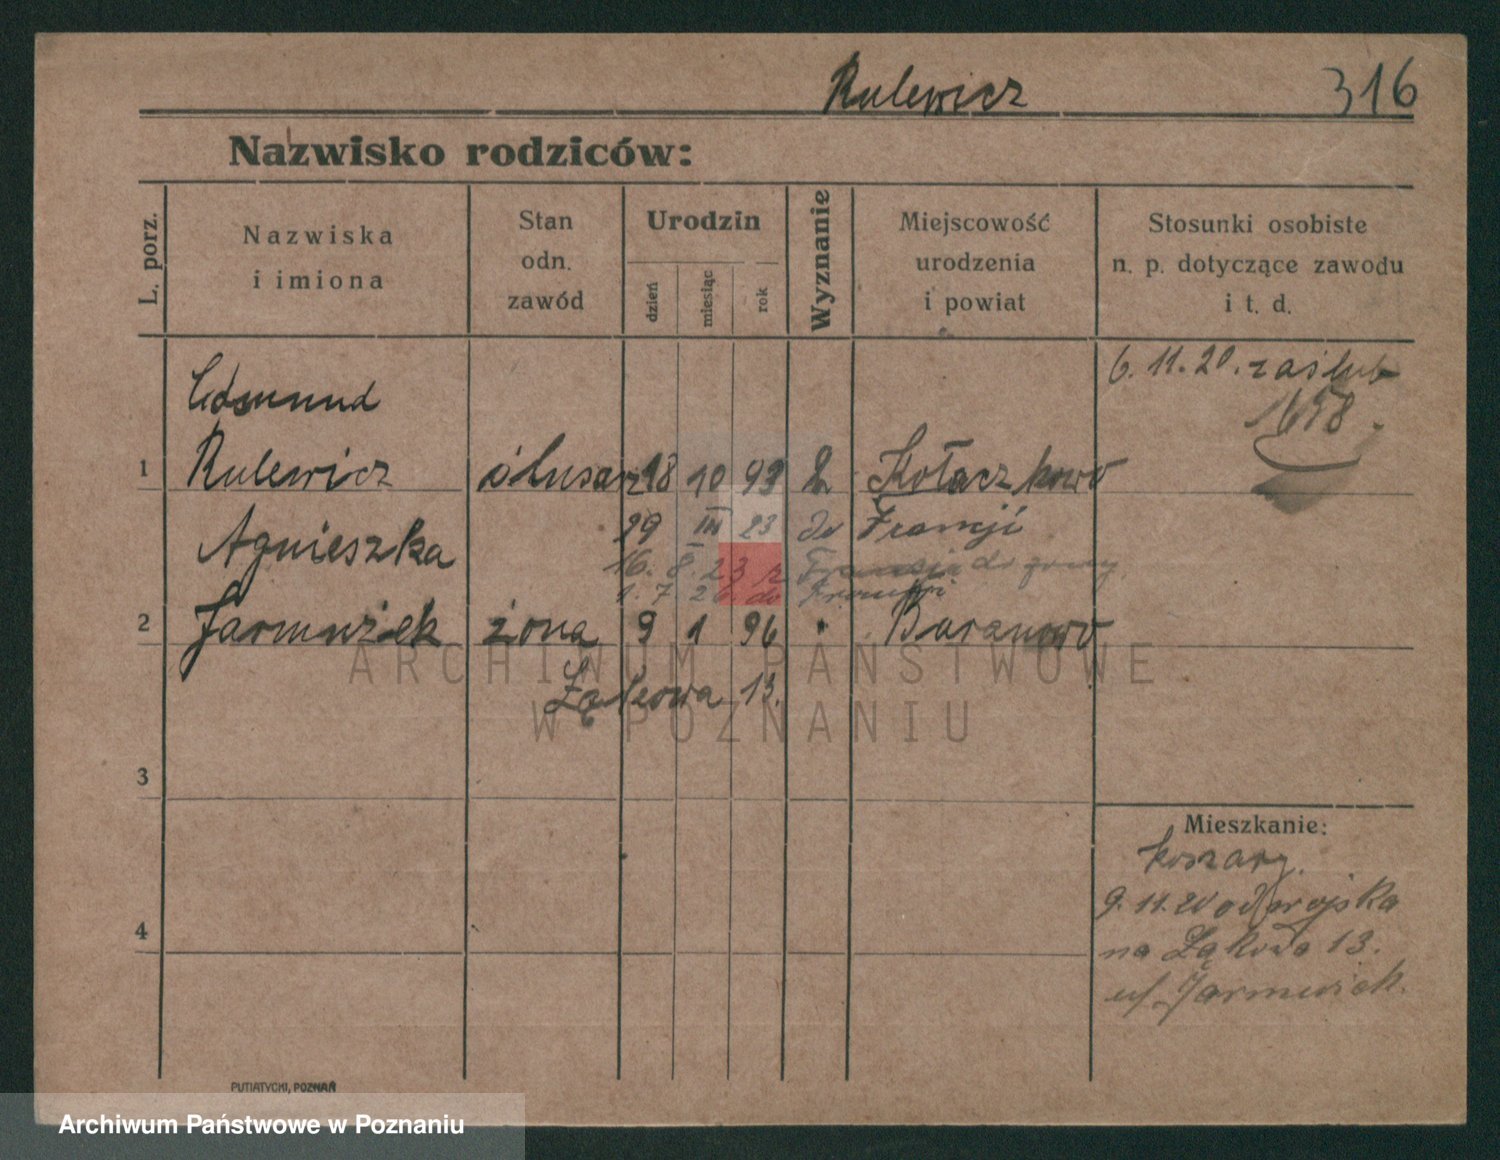 Rulewicz 316
Nazwisko rodziców:
L. porz.
Nazwiska
i imiona
Stan
odn.
zawód
Urodzin
dzień
miesiąc
rok
Wyznanie
Miejscowość
urodzenia
i powiat
Stosunki osobiste
n. p. dotyczące zawodu
i t. d.
6. 11. 20. zaślub
1698.
Edmund
1 Rulewicz ślusarz 18 10 93 Kołaczkowo
29 III 23 do Francji
Agnieszka
16. 8. 23 r Francja do żony
1. 7 26. do Francji
2 Jarmużek żona 9 1 96 Baranowo
Łąkowa 13.
ARCHIWUM PAŃSTWOWE
W POZNANIU
3
Mieszkanie:
koszary.
9. 11. 20 od wojska
4
na Łąkowa 13.
u/ Jarmużek.
PUTIATYCKI, POZNAŃ
Archiwum Państwowe w Poznaniu